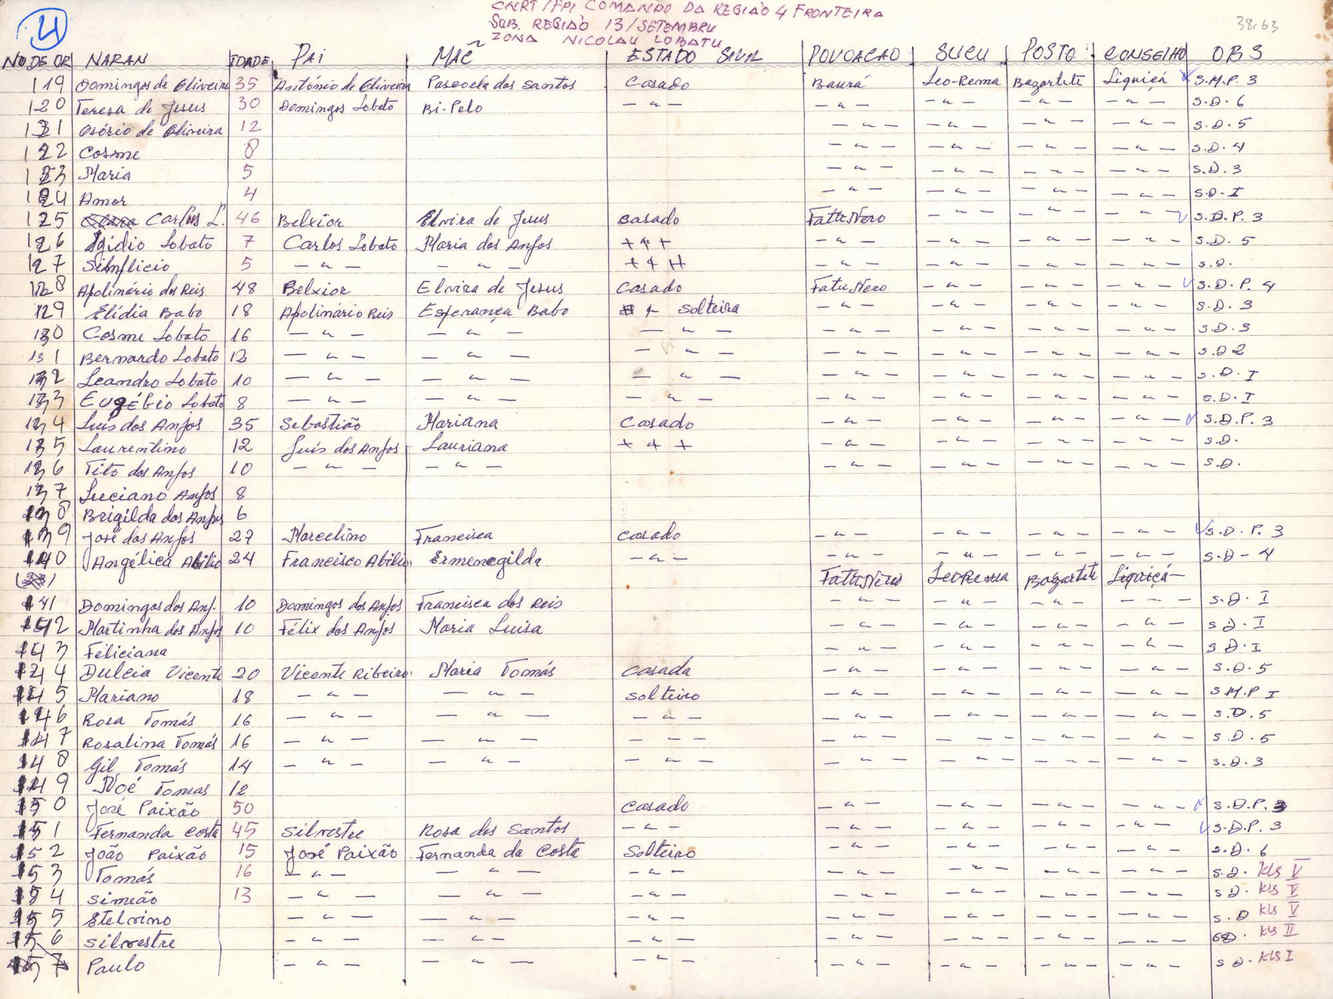 4
CNRT/FPI COMANDO DA REGIÃO 4 FRONTEIRA
SUB. REGIÃO 13/SETEMBRU
ZONA NICOLAU LOBATU
38:63
NO DE OR NARAN IDADE PAI MÃE ESTADO SIVIL POVOACAO SUCU POSTO CONSELHO OBS
119 Domingos de Oliveira 35 António de Oliveira Pascoela dos Santos Casado Baurá Leo-Rema Bazartete Liquiçá S.M.P. 3
120 Teresa de Jesus 30 Domingos Lobato Bi-Pelo — " — — " — — " — — " — — " — S.D. 6
121 Osório de Oliveira 12 — " — — " — — " — — " — S.D. 5
122 Cosme 8 — " — — " — — " — — " — S.D. 4
123 Maria 5 — " — — " — — " — — " — S.D. 3
124 Amor 4 — " — — " — — " — — " — S.D. I
125 Carlos L. 46 Belxior Elvira de Jesus Casado FatuNero — " — — " — — " — S.D.P. 3
126 Egidio Lobato 7 Carlos Lobato Maria dos Anjos +++ — " — — " — — " — — " — S.D. 5
127 Simflicio 5 — " — — " — +++ — " — — " — — " — — " — S.D.
128 Apolinário dos Reis 48 Belxior Elvira de Jesus Casado FatuNero — " — — " — — " — S.D.P. 4
129 Elidia Babo 18 Apolinário Reis Esperança Babo Solteira — " — — " — — " — — " — S.D. 3
130 Cosme Lobato 16 — " — — " — — " — — " — — " — — " — — " — S.D. 3
131 Bernardo Lobato 12 — " — — " — — " — — " — — " — — " — — " — S.D 2
132 Leandro Lobato 10 — " — — " — — " — — " — — " — — " — — " — S.D. I
133 Eugébio Lobato 8 — " — — " — — " — — " — — " — — " — — " — S.D. I
134 Luís dos Anjos 35 Sebastião Mariana Casado — " — — " — — " — — " — S.D.P. 3
135 Laurentino 12 Luís dos Anjos Lauriana +++ — " — — " — — " — — " — S.D.
136 Tito dos Anjos 10 — " — — " — — " — — " — — " — — " — S.D.
137 Luciano Anjos 8
138 Brigilda dos Anjos 6
139 José dos Anjos 27 Marcelino Francisca Casado — " — — " — — " — — " — S.D.P. 3
140 Angélica Abílio 24 Francisco Abílio Ermenegilda — " — — " — — " — — " — — " — S.D - 4
FatuNeru LeoRema Bazartete Liquiçá
141 Domingos dos Anj. 10 Domingos dos Anjos Francisca dos Reis — " — — " — — " — — " — S.D. I
142 Martinha dos Anjos 10 Félix dos Anjos Maria Luisa — " — — " — — " — — " — S D. I
143 Feliciana — " — — " — — " — — " — S D. I
144 Dulcia Vicente 20 Vicente Ribeiro Maria Tomás Casada — " — — " — — " — — " — S.D. 5
145 Mariano 18 — " — — " — Solteiro — " — — " — — " — — " — S M.P I
146 Rosa Tomás 16 — " — — " — — " — — " — — " — — " — — " — S.D. 5
147 Rosalina Tomás 16 — " — — " — — — — — " — — " — — " — — " — S.D. 5
148 Gil Tomás 14 — " — — " — — " — — " — — " — — " — — " — S.D. 3
149 Noé Tomas 12
150 José Paixão 50 Casado — " — — " — — " — — " — S.D.P. 3
151 Fernanda Costa 45 Silvestre Rosa dos Santos — " — — " — — " — — " — — " — S.D.P. 3
152 João Paixão 15 José Paixão Fernanda da Costa Solteiro — " — — " — — " — — " — S.D. 6
153 Tomás 16 — " — — " — — " — — " — — " — — " — — " — S.D. Kls V
154 Simião 13 — " — — " — — " — — " — — " — — " — — " — S D. Kls V
155 Etelvino — " — — " — — " — — " — — " — — " — — " — S.D Kls V
156 Silvestre — " — — " — — " — — " — — " — — " — — " — SD. Kls II
157 Paulo — " — — " — — " — — " — — " — — " — — " — S D. Kls I